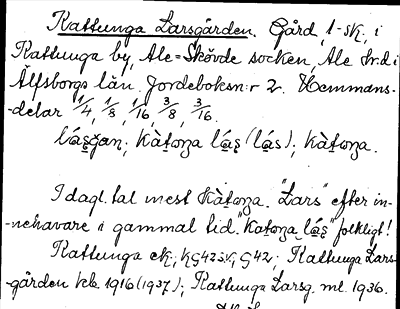 Kattunga Larsgården. Gård, 1 sk. i
Kattunga by, Ale-Skövde socken, Ale hrd i
Älfsborgs län. Jordeboksn:r 2. Hemmans-
-delar 1/4, 1/8, 1/16, 3/8, 3/16.
Kàtoŋa
I dagl. tal mest Kàtoŋa. "Lars" efter in-
-nehavare i gammal tid. "Katoŋa lás" folkligt!
Kattunga ek; KG42SV, G42; Kattunga Lars-
-gården kbk 1916 (1937); Kattunga Larsg. ml. 1936.